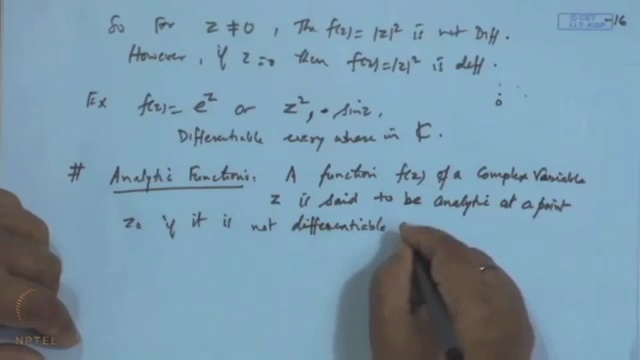 So For z ≠ 0, The f(z) = |z|² is not Diff.
However, if z = 0 then f(z) = |z|² is diff.
Ex f(z) = e^z or z², sin z,
Differentiable every where in ₵.
# Analytic Function: A function f(z) of a complex variable
z is said to be analytic at a point
z₀ if it is not differentiable
© CET
I.I.T. KGP
-16
NPTEL